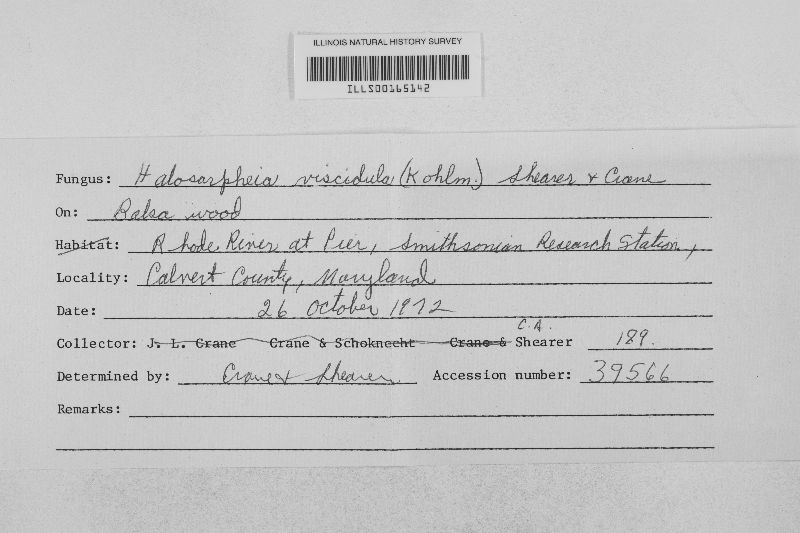 ILLINOIS NATURAL HISTORY SURVEY
ILLS00165142
Fungus: Halosarpheia viscidula (Kohlm.) Shearer & Crane
On: Balsa wood
Habitat: Rhode River at Pier, Smithsonian Research Station,
Locality: Calvert County, Maryland
Date: 26 October 1972
C.A.
Collector: J. L. Crane Crane & Schoknecht Crane & Shearer 189.
Determined by: Crane & Shearer Accession number: 39566
Remarks: